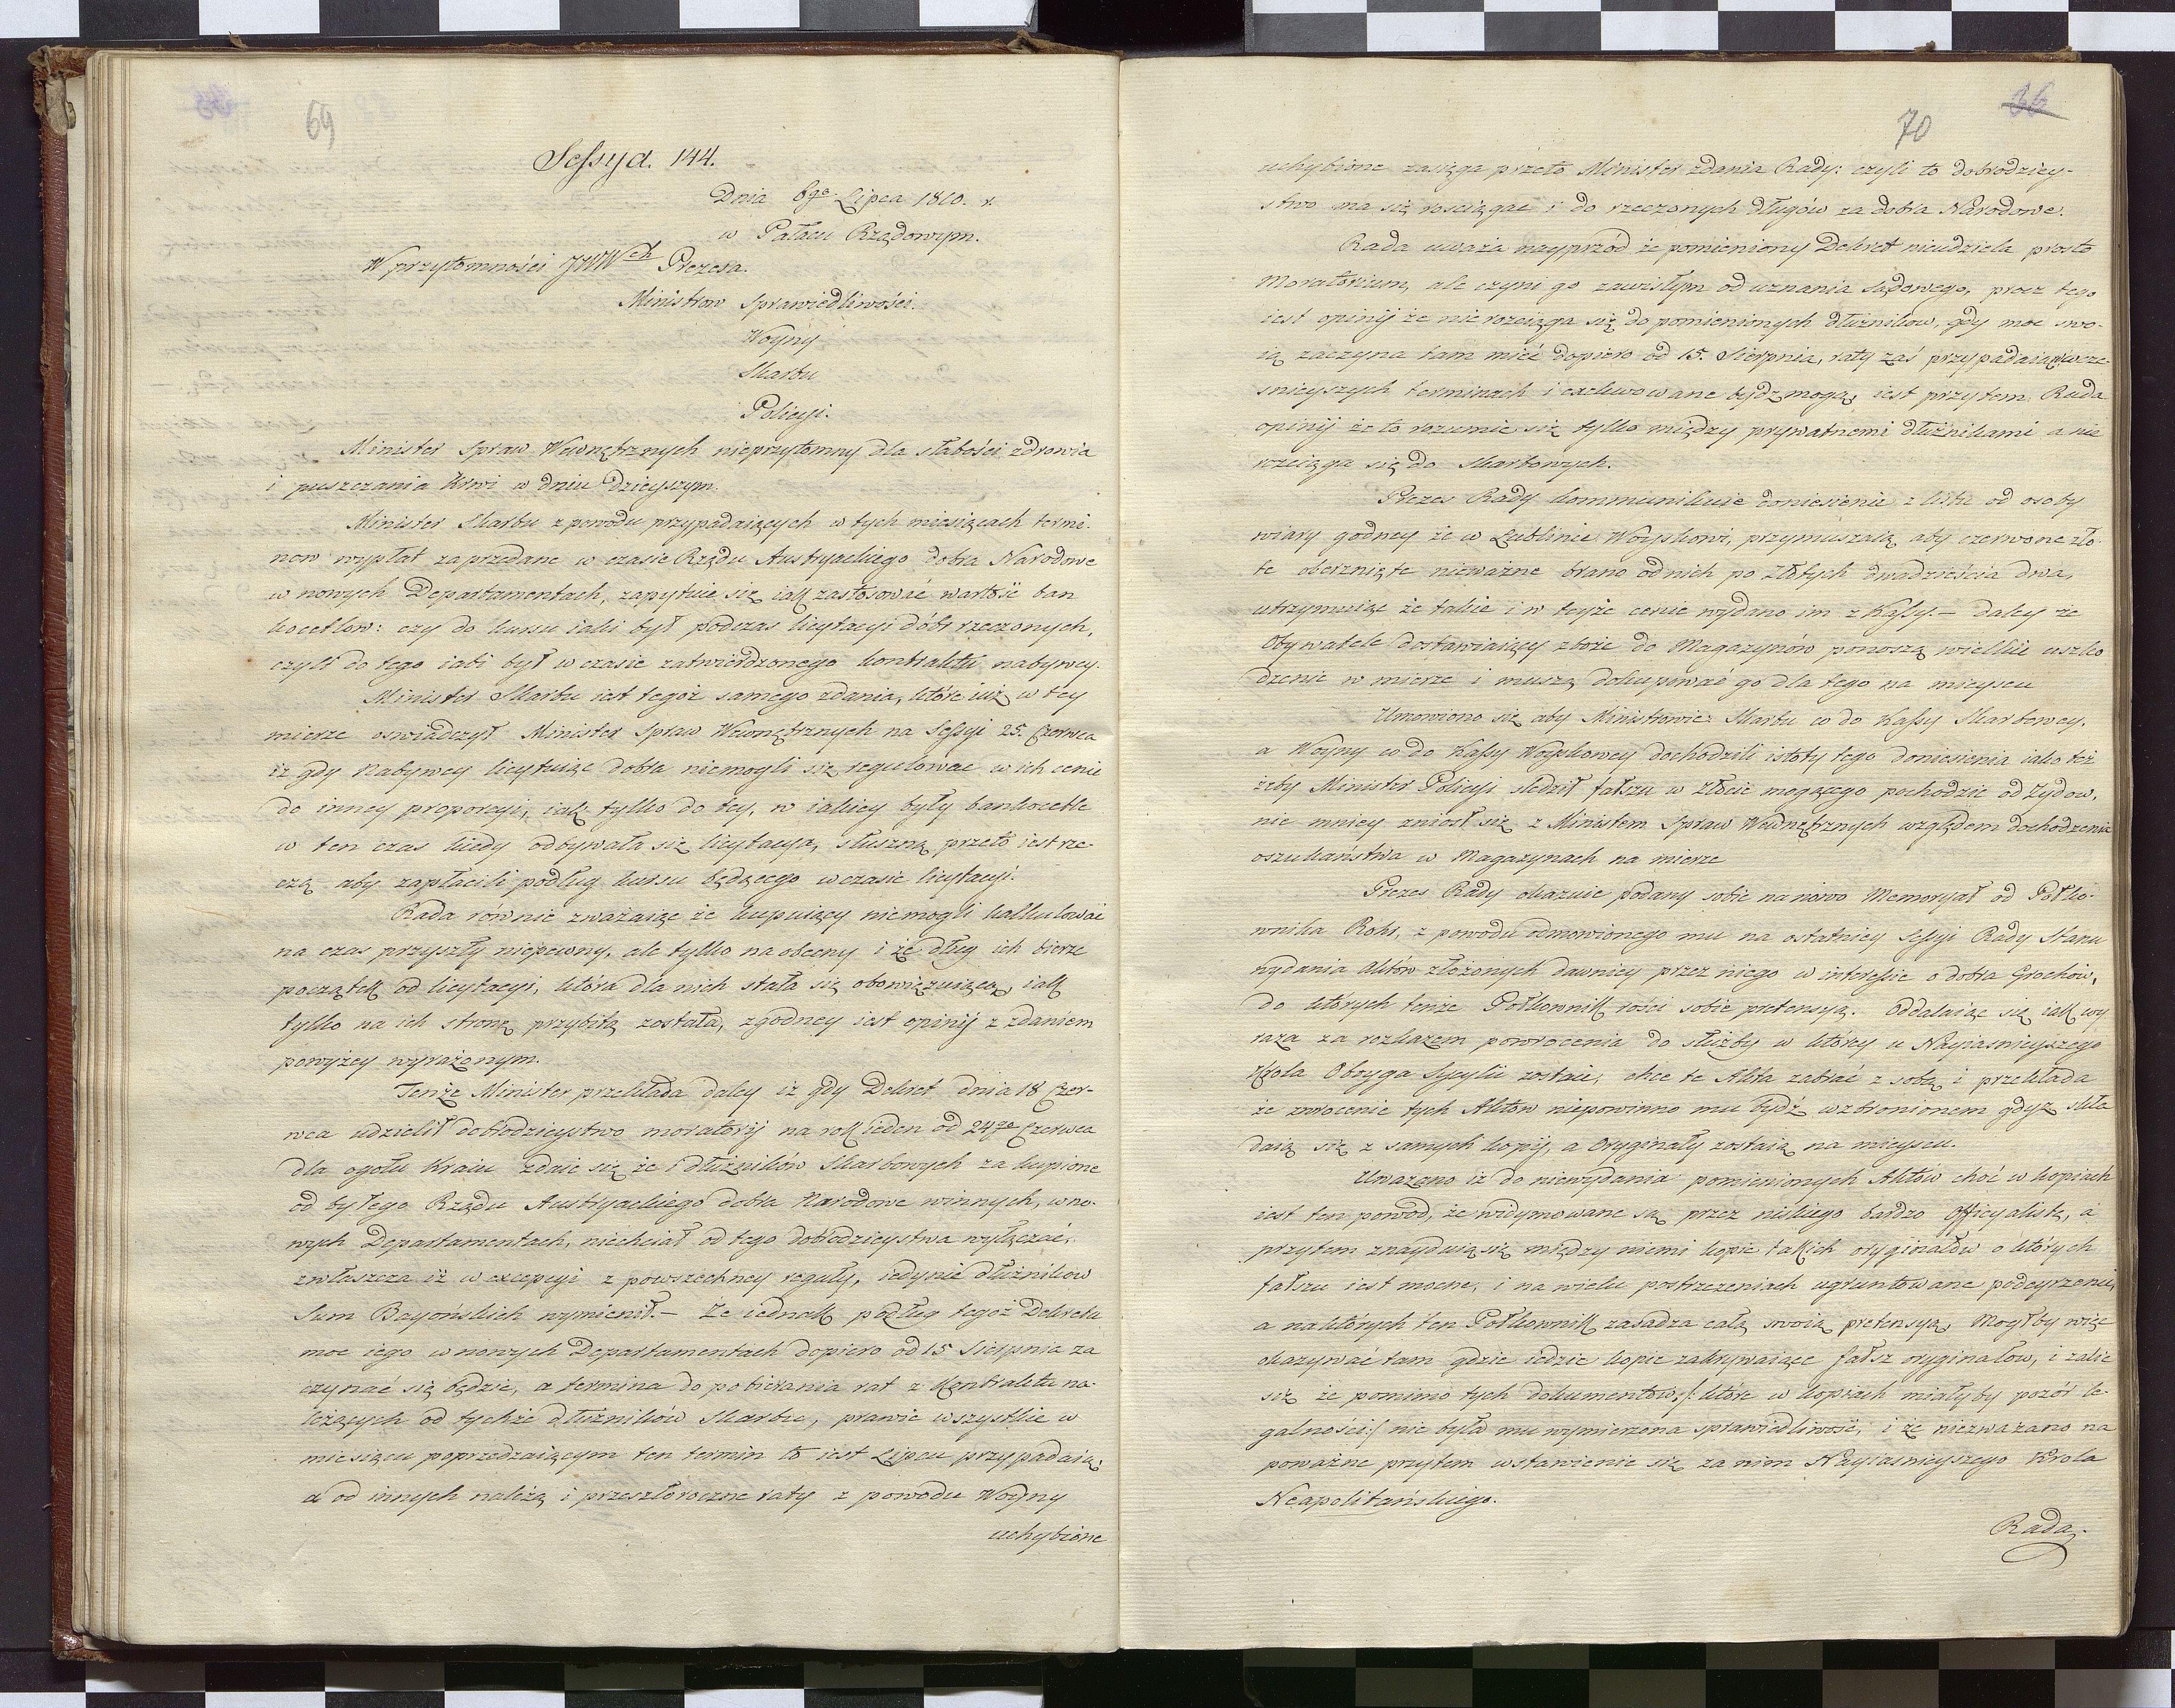 69
Sessya. 144.
Dnia 6go Lipca 1810. r.
w Pałacu Rządowym.
W przytomności JWWch Prezesa.
Ministrow Sprawiedliwości.
Woyny
Skarbu
Policyi.
Minister Spraw Wewnętrznych nieprzytomny dla słabości zdrowia
i puszczania krwi w dniu dzieyszym.
Minister Skarbu z powodu przypadaiących w tych miesiącach termi-
now wypłat za przedane w czasie Rządu Austryackiego dobra Narodowe
w nowych Departamentach, zapytuie się iak zastosować wartość ban
kocetlow: czy do kursu iaki był podczas licytacyi dóbr rzeczonych,
czyli do tego iaki był w czasie zatwierdzonego kontraktu nabywcy.
Minister Skarbu iest tegoż samego zdania, które iuż w tey
mierze oswiadczył Minister Spraw Wewnętrznych na Sessyi 25. Czerwca
iż gdy Nabywcy licytuiąc dobra niemogli się regulować w ich cenie
do inney proporcyi, iak tylko do tey, w iakiey były bankocetle
w ten czas kiedy odbywała się licytacya, słuszną przeto iest rze-
czą aby zapłacili podług kursu będącego w czasie licytacyi.
Rada równie zważaiąc że kupuiący niemogli kalkulować
na czas przyszły niepewny, ale tylko na obecny i że dług ich bierze
początek od licytacyi, która dla nich stała się obowięzuiącą, iak
tylko na ich stronę przybitą została, zgodney iest opinij z zdaniem
powyżey wyrażonym.
Tenże Minister przekłada daley iż gdy Dekret dnia 18 Czer-
wca udzielił dobrodzieystwo moratorij na rok ieden od 24go Czerwca
dla ogołu Kraiu zdaie się że i dłużników Skarbowych za kupione
od byłego Rządu Austryackiego dobra Narodowe winnych, w no-
wych Departamentach, niechciał od tego dobrodzieystwa wyłączać,
zwłaszcza iż w excepcyi z powszechney reguły, iedynie dłużnikow
Sum Bayońskich wymienił.- Że iednak podług tegoż Dekretu
moc iego w nowych Departamentach dopiero od 15 Sierpnia za
czynać się będzie, a termina do pobierania rat z Kontraktu na-
leżących od tychże dłużników Skarbu, prawie wszystkie w
miesiącu poprzedzaiącym ten termin to iest Lipcu przypadaią,
a od innych należą i przeszłoroczne raty z powodu Woyny
uchybione
36
70
uchybione zasięga przeto Minister zdania Rady: czyli to dobrodziey-
stwo ma się rościągać i do rzeczonych długów za dobra Narodowe.
Rada uważa nayprzód że pomieniony Dekret nieudziela prosto
Moratorium, ale czyni go zawisłym od uznania Sądowego, prócz tego
iest opinij że nie rozciąga się do pomienionych dłużnikow, gdy moc swo-
ią zaczyna tam mieć dopiero od 15. Sierpnia, raty zaś przypadaią w wcze-
snieyszych terminach i exekwowane bydź mogą, iest przytem Rada
opinij że to rozumie się tylko między prywatnemi dłużnikami a nie
rozciąga się do Skarbowych.
Prezes Rady kommunikuie doniesienie z listu od osoby
wiary godney że w Lublinie Woyskowi, przymuszaią aby czerwone zło-
te oberznięte nieważne brano od nich po Złotych dwadzieścia dwa,
utrzymuiąc że takie i w teyże cenie wydano im z Kassy.- daley że
Obywatele dostawiaiący zboże do Magazynów ponoszą wielkie uszko
dzenie w mierze i muszą dokupować go dla tego na mieyscu
Umowiono się aby Ministrowie: Skarbu co do Kassy Skarbowey,
a Woyny co do Kassy Woyskowey dochodzili istoty tego doniesienia iako też
żeby Minister Policyi sledził fałszu w złocie mogącego pochodzić od Żydow,
nie mniey zniosł się z Ministrem Spraw Wewnętrznych względem dochodzenia
oszukaństwa w Magazynach na mierze
Prezes Rady okazuie podany sobie na nowo Memoryał od Połko-
wnika Rohr, z powodu odmowionego mu na ostatniey Sessyi Rady Stanu
wydania Aktów złożonych dawniey przez niego w interessie o dobra Grochów,
do których tenże Połkownik rości sobie pretensyą. Oddalaiąc się iak wy
raża za rozkazem powrocenia do służby w którey u Nayiasnieyszego
Króla Oboyga Sycylii zostaie, chce te Akta zabrać z sobą i przekłada
że zwrocenie tych Aktow niepowinno mu bydź wzbronionem gdyż skła
daią się z samych kopij, a Oryginały zostaią na mieyscu.
Uważano iż do niewydania pomienionych Aktów choć w kopiach
iest ten powod, że widymowane są przez niskiego bardzo Officyalistę, a
przytem znayduią się między niemi kopie takich oryginałów o których
fałszu iest mocne, i na wielu postrzeżeniach ugruntowane podeyrzenie,
a na których ten Połkownik zasadza całą swoią pretensyą, Mogłby więc
okazywać tam gdzie iedzie kopie zakrywaiące fałsz oryginałow, i żalić
się że pomimo tych dokumentow, /: które w kopiach miałyby pozór le-
galności:/ nie była mu wymierzona sprawiedliwość, i że niezważano na
poważne przytem wstawienie się za nim Nayiasnieyszego Krola
Neapolitańskiego.
Rada